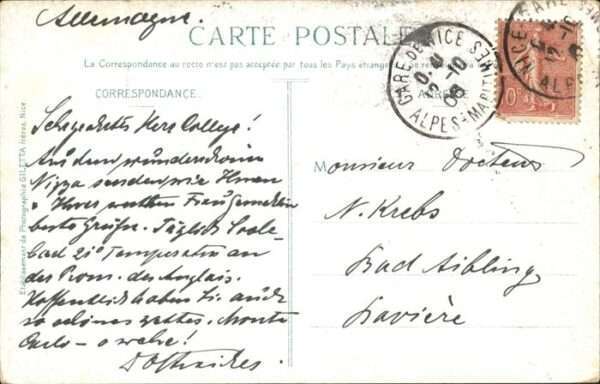 Allemagne.
CARTE POSTALE
La Correspondance au recto n'est pas acceptée par tous les Pays étrangers
CORRESPONDANCE
ADRESSE
GARE DE NICE
ALPES-MARITIMES
2-10
06
Sehr geehrter Herr College!
Aus dem wunderschönen
Nizza senden wir Ihnen
u Ihrer werthen Frau Gemahlin
beste Grüße. Täglich Seebad
21° Temperatur an
der Prom. des Anglais.
Hoffentlich haben Sie auch
so schönes Wetter. Monte
Carlo - o wehe!
Monsieur Docteur
N. Krebs
Bad Aibling
Bavière
Etablissement de Photographie GILETTA frères, Nice